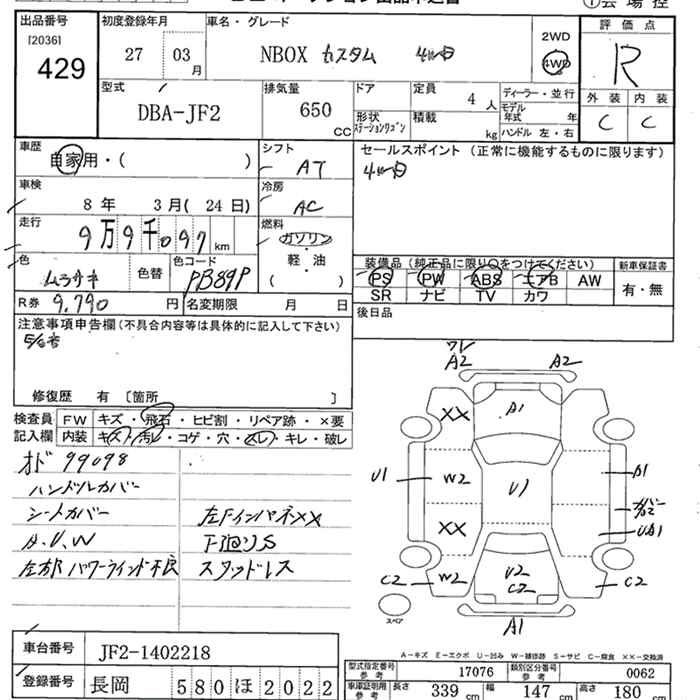 出品番号 初度登録年月 車名・グレード 評価点
[2036] 27 03月 NBOX カスタム 4WD 2WD R
429 4WD
型式 排気量 ドア 定員 ディーラー・並行 外装 内装
DBA-JF2 650 CC 形状 ステーションワゴン 4人 モデル年式 年 C C
積載 kg ハンドル 左・右
車歴 自家用・( ) シフト AT セールスポイント (正常に機能するものに限ります)
車検 8年 3月( 24日) 冷房 AC
走行 9万9千097 km 燃料 ガソリン・軽・油 ( )
色 ムラサキ 色替 色コード PB89P
装備品 (純正品に限り○をつけてください) 新車保証書
PS PW ABS エアB AW 有・無
SR ナビ TV カワ
R券 9,790円 名変期限 月 日 後日品
注意事項申告欄(不具合内容等は具体的に記入して下さい)
修復歴 有 [箇所 ]
検査員 FW キズ・飛石・ヒビ割・リペア跡・×要
記入欄 内装 キズ・汚レ・コゲ・穴・スレ・キレ・破レ
オド 99098
ハンドルカバー
シートカバー 左FインパネXX
A、U、W 下廻りS
左前 パワーウインド不良 スタッドレス
ワレ
A2 A2
XX A1
U1 W2 U1 A1
カバー
A2
XX UA1
C2 W2 U2 C2 C2
スペア A1
A-キズ E-エクボ U-凹み W-補修跡 S-サビ C-腐食 XX-交換済
車台番号 JF2-1402218
登録番号 長岡 580 ほ 2022
型式指定番号 参考 17076 類別区分番号 参考 0062
車庫証明用 参考 長さ 339 cm 幅 147 cm 高さ 180 cm